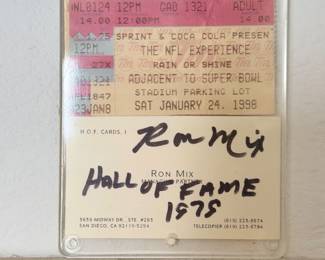 NL0124 12PM GAD 1321 ADULT
14.00 12:00PM 14.00
SPRINT & COCA COLA PRESEN
12PM
THE NFL EXPERIENCE
27X
RAIN OR SHINE
ADJACENT TO SUPER BOWL
1847
STADIUM PARKING LOT
23JAN8
SAT JANUARY 24, 1998
H.O.F. CARDS, I
Ron Mix
RON MIX
HALL OF FAME
1979
5656 MIDWAY DR. STE #205
SAN DIEGO, CA 92110-5254
(619) 225-8874
TELECOPIER (619) 225-8794